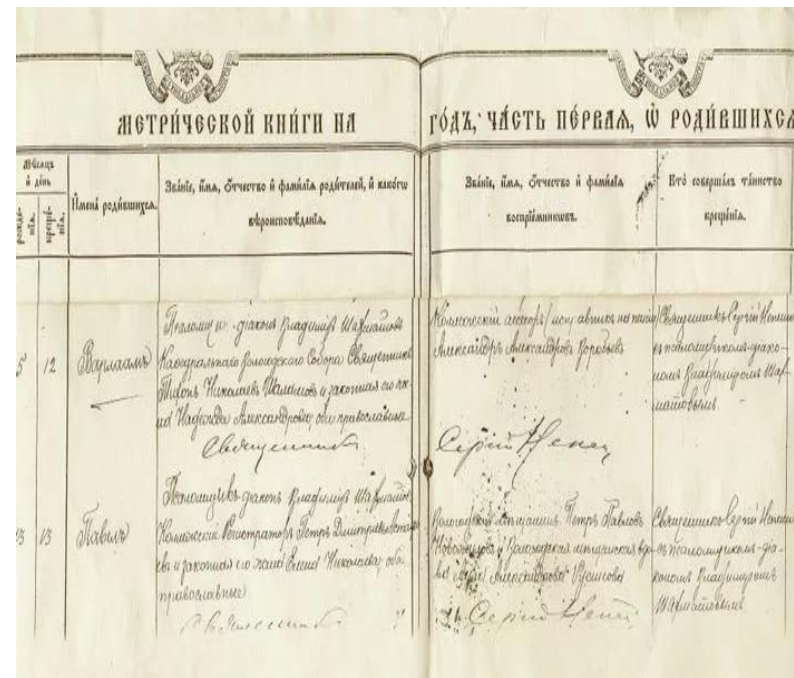 МЕТРИ́ЧЕСКОЙ КНИ́ГИ НА
ГО́ДЪ, ЧА́СТЬ ПЕ́РВАЯ, Ѡ РОДИ́ВШИХСѦ
Мѣ́сѧцъ
и҆ де́нь
рожде-
нїѧ.
креще-
нїѧ.
И҆мена̀ роди́вшихсѧ.
Зва́нїе, и҆́мѧ, ѻ҆́тчество и҆ фамилїѧ роди́телей, и҆ како́гѡ
вѣроисповѣ́данїѧ.
Зва́нїе, и҆́мѧ, ѻ҆́тчество и҆ фамилїѧ
воспрїе́мникѡвъ.
Кто̀ соверша́лъ та́инство
креще́нїѧ.
5
12
Варлаамъ
діаконъ Владиміръ Шахматовъ
Каѳедральнаго Вологодскаго Собора Священникъ
Тихонъ Николаевъ Шаламовъ и законная его же-
на Надежда Александрова, оба православные
Священникъ
Коллежскій асессоръ
Александръ Александровъ Воробьевъ
Сергій
Священникъ Сергій
съ псаломщикомъ-діако-
номъ Владиміромъ Шах-
матовымъ.
13
13
Павелъ
Псаломщикъ-діаконъ Владиміръ Шахматовъ
Коллежскій Регистраторъ Петръ Димитріевъ
и законная его жена Елена Николаева, оба
православные
Священникъ
Вологодскій мѣщанинъ Петръ Павловъ
и Вологодская мѣщанская вдо-
ва Александрова
Сергій
Священникъ Сергій
съ псаломщикомъ-діа-
кономъ Владиміромъ
Шахматовымъ